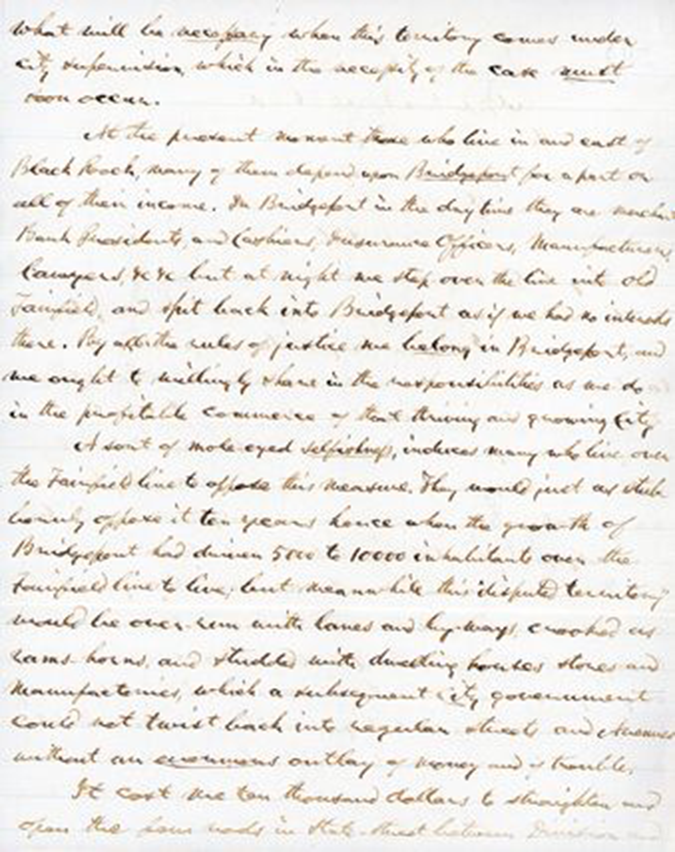 what will be necessary when this territory comes under
city supervision, which in the necessity of the case must
soon occur.
At the present moment those who live in and east of
Black Rock, many of them depend upon Bridgeport for a part or
all of their income. In Bridgeport in the day time they are merchants
Bank Presidents, and Cashiers, Insurance Officers, Manufacturers,
Lawyers, &c &c but at night we step over the line into old
Fairfield, and spit back into Bridgeport as if we had no interests
there. By all the rules of justice we belong in Bridgeport, and
we ought to willingly share in the responsibilities as we do
in the profitable commerce of that thriving and growing City
A sort of mole-eyed selfishness, induces many who live over
the Fairfield line to oppose this measure. They would just as stub
bornly oppose it ten years hence when the growth of
Bridgeport had driven 5000 to 10000 inhabitants over the
Fairfield line to live, but meanwhile this disputed territory
would be over-run with lanes and by-ways, crooked as
rams-horns, and studded with dwelling houses stores and
manufactories, which a subsequent City government
could not twist back into regular streets and Avenues
without an enormous outlay of money and of trouble.
It cost me ten thousand dollars to straighten and
open the four rods in State-street between Division and